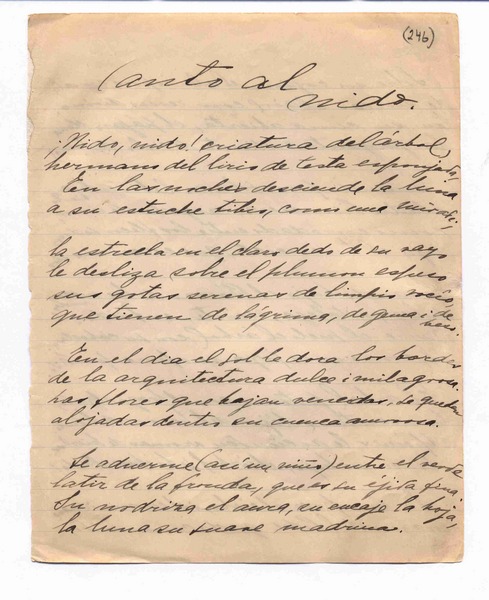 (246)
Canto al
nido.
¡Nido, nido! criatura del árbol,
hermano del lirio de testa esponjada,
En las noches desciende la luna
a su estuche tibio, como una mirada;
la estrella en el claro dedo de su rayo
le desliza sobre el plumon espeso
sus gotas serenas de limpio rocío,
que tienen de lágrima, de gema i de
beso.
En el dia el sol le dora los bordes
de la arquitectura dulce i milagrosa.
Las flores que bajan venestas, se quedan
alojadas dentro su cuenca amorosa.
Se aduerme (así un niño) entre el verde
latir de la fronda, que es su éjita fina.
Su nodriza el aura, su encaje la hoja,
la luna su suave madrina.